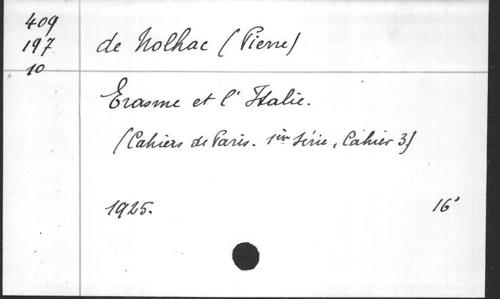 409
197
10
de Nolhac (Pierre)
Erasme et l'Italie.
(Cahiers de Paris. 1ère Série, Cahier 3)
1925.
16°